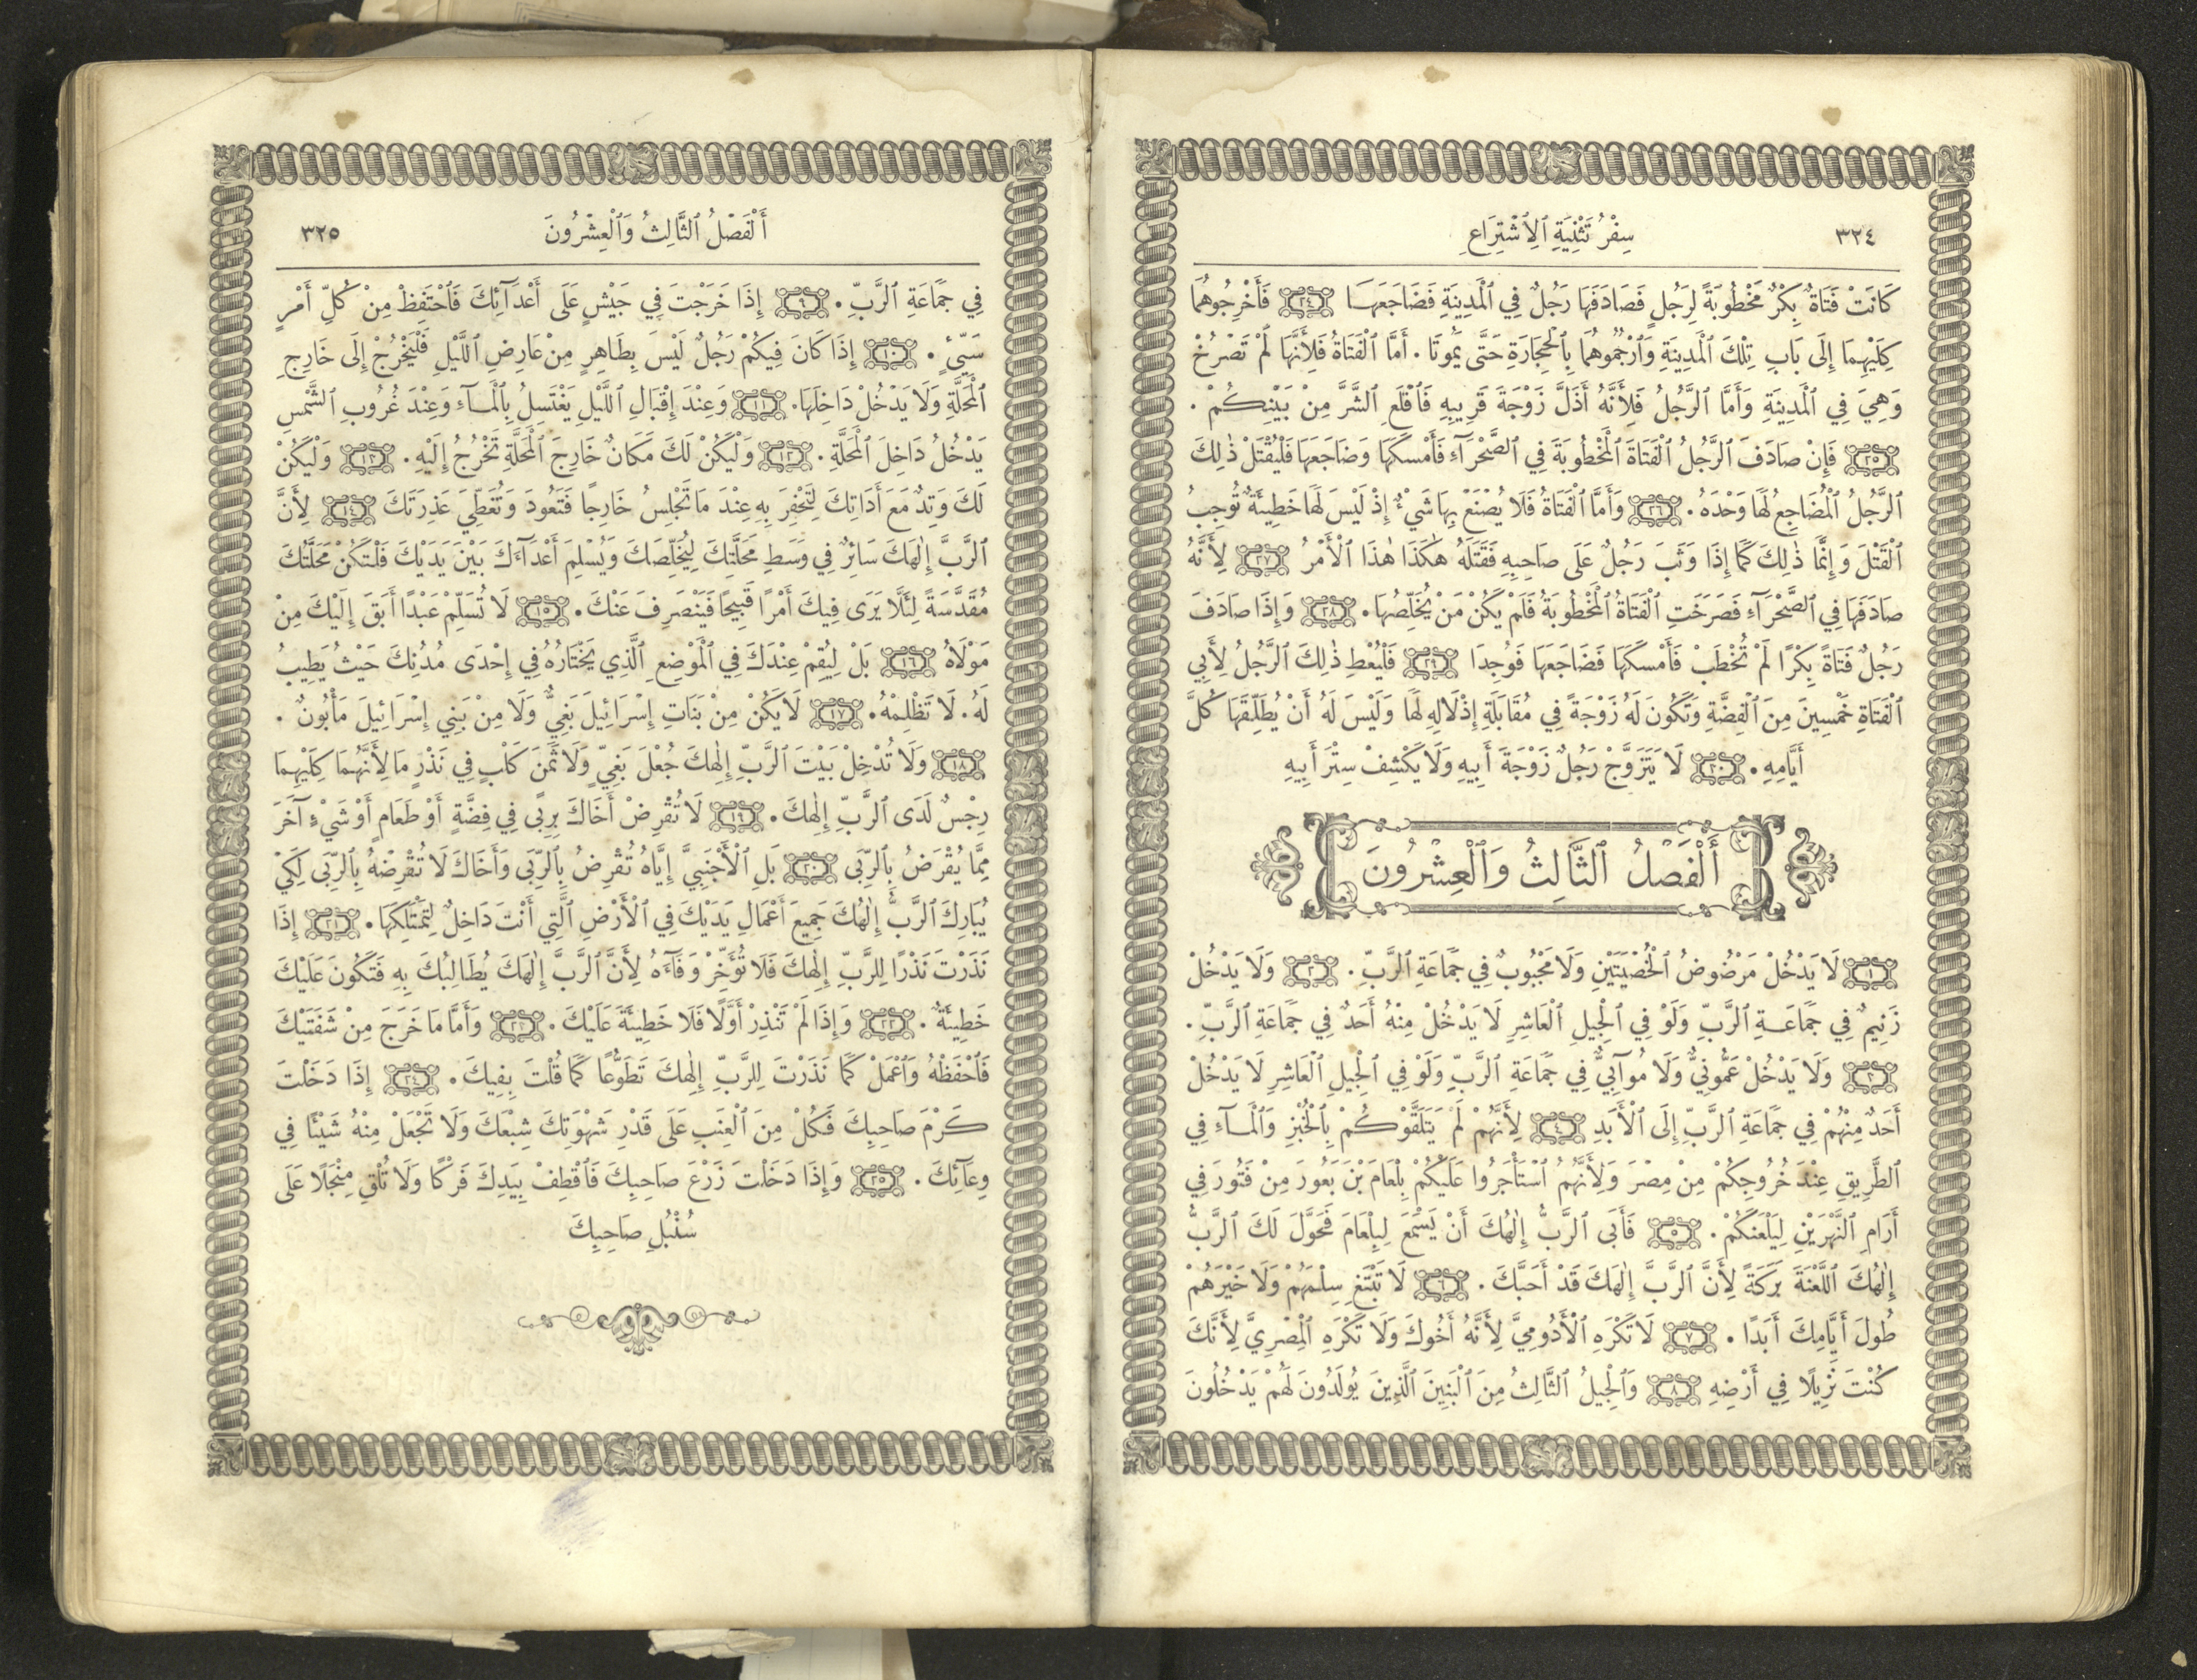 ٣٢٤ سِفْرُ تَثْنِيَةِ ٱلِٱشْتِرَاعِ
كَانَتْ فَتَاةٌ بِكْرٌ مَخْطُوبَةً لِرَجُلٍ فَصَادَفَهَا رَجُلٌ فِي ٱلْمَدِينَةِ فَضَاجَعَهَا ٢٤ فَأَخْرِجُوهُمَا
كِلَيْهِمَا إِلَى بَابِ تِلْكَ ٱلْمَدِينَةِ وَٱرْجُمُوهُمَا بِٱلْحِجَارَةِ حَتَّى يَمُوتَا . أَمَّا ٱلْفَتَاةُ فَلِأَنَّهَا لَمْ تَصْرُخْ
وَهِيَ فِي ٱلْمَدِينَةِ وَأَمَّا ٱلرَّجُلُ فَلِأَنَّهُ أَذَلَّ زَوْجَةَ قَرِيبِهِ فَٱقْلَعِ ٱلشَّرَّ مِنْ بَيْنِكُمْ .
٢٥ فَإِنْ صَادَفَ ٱلرَّجُلُ ٱلْفَتَاةَ ٱلْمَخْطُوبَةَ فِي ٱلصَّحْرَآءِ فَأَمْسَكَهَا وَضَاجَعَهَا فَلْيُقْتَلْ ذٰلِكَ
ٱلرَّجُلُ ٱلْمُضَاجِعُ لَهَا وَحْدَهُ . ٢٦ وَأَمَّا ٱلْفَتَاةُ فَلَا يُصْنَعْ بِهَا شَيْءٌ إِذْ لَيْسَ لَهَا خَطِيئَةٌ تُوجِبُ
ٱلْقَتْلَ وَإِنَّمَا ذٰلِكَ كَمَا إِذَا وَثَبَ رَجُلٌ عَلَى صَاحِبِهِ فَقَتَلَهُ هٰكَذَا هٰذَا ٱلْأَمْرُ ٢٧ لِأَنَّهُ
صَادَفَهَا فِي ٱلصَّحْرَآءِ فَصَرَخَتِ ٱلْفَتَاةُ ٱلْمَخْطُوبَةُ فَلَمْ يَكُنْ مَنْ يُخَلِّصُهَا . ٢٨ وَإِذَا صَادَفَ
رَجُلٌ فَتَاةً بِكْرًا لَمْ تُخْطَبْ فَأَمْسَكَهَا فَضَاجَعَهَا فَوُجِدَا ٢٩ فَلْيُعْطِ ذٰلِكَ ٱلرَّجُلُ لِأَبِي
ٱلْفَتَاةِ خَمْسِينَ مِنَ ٱلْفِضَّةِ وَتَكُونَ لَهُ زَوْجَةً فِي مُقَابَلَةِ إِذْلَالِهِ لَهَا وَلَيْسَ لَهُ أَنْ يُطَلِّقَهَا كُلَّ
أَيَّامِهِ . ٣٠ لَا يَتَزَوَّجْ رَجُلٌ زَوْجَةَ أَبِيهِ وَلَا يَكْشِفْ سِتْرَ أَبِيهِ
أَلْفَصْلُ ٱلثَّالِثُ وَٱلْعِشْرُونَ
١ لَا يَدْخُلْ مَرْضُوضُ ٱلْخُصْيَتَيْنِ وَلَا مَجْبُوبٌ فِي جَمَاعَةِ ٱلرَّبِّ . ٢ وَلَا يَدْخُلْ
زَنِيمٌ فِي جَمَاعَةِ ٱلرَّبِّ وَلَوْ فِي ٱلْجِيلِ ٱلْعَاشِرِ لَا يَدْخُلْ مِنْهُ أَحَدٌ فِي جَمَاعَةِ ٱلرَّبِّ .
٣ وَلَا يَدْخُلْ عَمُّونِيٌّ وَلَا مُوآبِيٌّ فِي جَمَاعَةِ ٱلرَّبِّ وَلَوْ فِي ٱلْجِيلِ ٱلْعَاشِرِ لَا يَدْخُلْ
أَحَدٌ مِنْهُمْ فِي جَمَاعَةِ ٱلرَّبِّ إِلَى ٱلْأَبَدِ ٤ لِأَنَّهُمْ لَمْ يَتَلَقَّوْكُمْ بِٱلْخُبْزِ وَٱلْمَآءِ فِي
ٱلطَّرِيقِ عِنْدَ خُرُوجِكُمْ مِنْ مِصْرَ وَلِأَنَّهُمُ ٱسْتَأْجَرُوا عَلَيْكُمْ بِلْعَامَ بْنَ بَعُورَ مِنْ فَتُورَ فِي
أَرَامِ ٱلنَّهْرَيْنِ لِيَلْعَنَكُمْ . ٥ فَأَبَى ٱلرَّبُّ إِلٰهُكَ أَنْ يَسْمَعَ لِبِلْعَامَ فَحَوَّلَ لَكَ ٱلرَّبُّ
إِلٰهُكَ ٱللَّعْنَةَ بَرَكَةً لِأَنَّ ٱلرَّبَّ إِلٰهَكَ قَدْ أَحَبَّكَ . ٦ لَا تَبْتَغِ سِلْمَهُمْ وَلَا خَيْرَهُمْ
طُولَ أَيَّامِكَ أَبَدًا . ٧ لَا تَكْرَهِ ٱلْأَدُومِيَّ لِأَنَّهُ أَخُوكَ وَلَا تَكْرَهِ ٱلْمِصْرِيَّ لِأَنَّكَ
كُنْتَ نَزِيلًا فِي أَرْضِهِ ٨ وَٱلْجِيلُ ٱلثَّالِثُ مِنَ ٱلْبَنِينَ ٱلَّذِينَ يُولَدُونَ لَهُمْ يَدْخُلُونَ
أَلْفَصْلُ ٱلثَّالِثُ وَٱلْعِشْرُونَ ٣٢٥
فِي جَمَاعَةِ ٱلرَّبِّ . ٩ إِذَا خَرَجْتَ فِي جَيْشٍ عَلَى أَعْدَآئِكَ فَٱحْتَفِظْ مِنْ كُلِّ أَمْرٍ
سَيِّئٍ . ١٠ إِذَا كَانَ فِيكُمْ رَجُلٌ لَيْسَ بِطَاهِرٍ مِنْ عَارِضِ ٱللَّيْلِ فَلْيَخْرُجْ إِلَى خَارِجِ
ٱلْمَحَلَّةِ وَلَا يَدْخُلْ دَاخِلَهَا . ١١ وَعِنْدَ إِقْبَالِ ٱللَّيْلِ يَغْتَسِلُ بِٱلْمَآءِ وَعِنْدَ غُرُوبِ ٱلشَّمْسِ
يَدْخُلُ دَاخِلَ ٱلْمَحَلَّةِ . ١٢ وَلْيَكُنْ لَكَ مَكَانٌ خَارِجَ ٱلْمَحَلَّةِ تَخْرُجُ إِلَيْهِ . ١٣ وَلْيَكُنْ
لَكَ وَتِدٌ مَعَ أَدَاتِكَ لِتَحْفِرَ بِهِ عِنْدَ مَا تَجْلِسُ خَارِجًا فَتَعُودَ وَتُغَطِّيَ عَذِرَتَكَ ١٤ لِأَنَّ
ٱلرَّبَّ إِلٰهَكَ سَائِرٌ فِي وَسَطِ مَحَلَّتِكَ لِيُخَلِّصَكَ وَيُسْلِمَ أَعْدَآءَكَ بَيْنَ يَدَيْكَ فَلْتَكُنْ مَحَلَّتُكَ
مُقَدَّسَةً لِئَلَّا يَرَى فِيكَ أَمْرًا قَبِيحًا فَيَنْصَرِفَ عَنْكَ . ١٥ لَا تُسَلِّمْ عَبْدًا أَبَقَ إِلَيْكَ مِنْ
مَوْلَاهُ ١٦ بَلْ لِيُقِمْ عِنْدَكَ فِي ٱلْمَوْضِعِ ٱلَّذِي يَخْتَارُهُ فِي إِحْدَى مُدُنِكَ حَيْثُ يَطِيبُ
لَهُ . لَا تَظْلِمْهُ . ١٧ لَا يَكُنْ مِنْ بَنَاتِ إِسْرَائِيلَ بَغِيٌّ وَلَا مِنْ بَنِي إِسْرَائِيلَ مَأْبُونٌ .
١٨ وَلَا تُدْخِلْ بَيْتَ ٱلرَّبِّ إِلٰهِكَ جُعْلَ بَغِيٍّ وَلَا ثَمَنَ كَلْبٍ فِي نَذْرٍ مَا لِأَنَّهُمَا كِلَيْهِمَا
رِجْسٌ لَدَى ٱلرَّبِّ إِلٰهِكَ . ١٩ لَا تُقْرِضْ أَخَاكَ بِرِبًى فِي فِضَّةٍ أَوْ طَعَامٍ أَوْ شَيْءٍ آخَرَ
مِمَّا يُقْرَضُ بِٱلرِّبَى ٢٠ بَلِ ٱلْأَجْنَبِيَّ إِيَّاهُ تُقْرِضُ بِٱلرِّبَى وَأَخَاكَ لَا تُقْرِضْهُ بِٱلرِّبَى لِكَيْ
يُبَارِكَ ٱلرَّبُّ إِلٰهُكَ جَمِيعَ أَعْمَالِ يَدَيْكَ فِي ٱلْأَرْضِ ٱلَّتِي أَنْتَ دَاخِلٌ لِتَمْتَلِكَهَا . ٢١ إِذَا
نَذَرْتَ نَذْرًا لِلرَّبِّ إِلٰهِكَ فَلَا تُؤَخِّرْ وَفَآءَهُ لِأَنَّ ٱلرَّبَّ إِلٰهَكَ يُطَالِبُكَ بِهِ فَتَكُونَ عَلَيْكَ
خَطِيئَةٌ . ٢٢ وَإِذَا لَمْ تَنْذِرْ أَوَّلًا فَلَا خَطِيئَةَ عَلَيْكَ . ٢٣ وَأَمَّا مَا خَرَجَ مِنْ شَفَتَيْكَ
فَٱحْفَظْهُ وَٱعْمَلْ كَمَا نَذَرْتَ لِلرَّبِّ إِلٰهِكَ تَطَوُّعًا كَمَا قُلْتَ بِفِيكَ . ٢٤ إِذَا دَخَلْتَ
كَرْمَ صَاحِبِكَ فَكُلْ مِنَ ٱلْعِنَبِ عَلَى قَدْرِ شَهْوَتِكَ شِبْعَكَ وَلَا تَجْعَلْ مِنْهُ شَيْئًا فِي
وِعَآئِكَ . ٢٥ وَإِذَا دَخَلْتَ زَرْعَ صَاحِبِكَ فَٱقْطِفْ بِيَدِكَ فَرْكًا وَلَا تُلْقِ مِنْجَلًا عَلَى
سُنْبُلِ صَاحِبِكَ